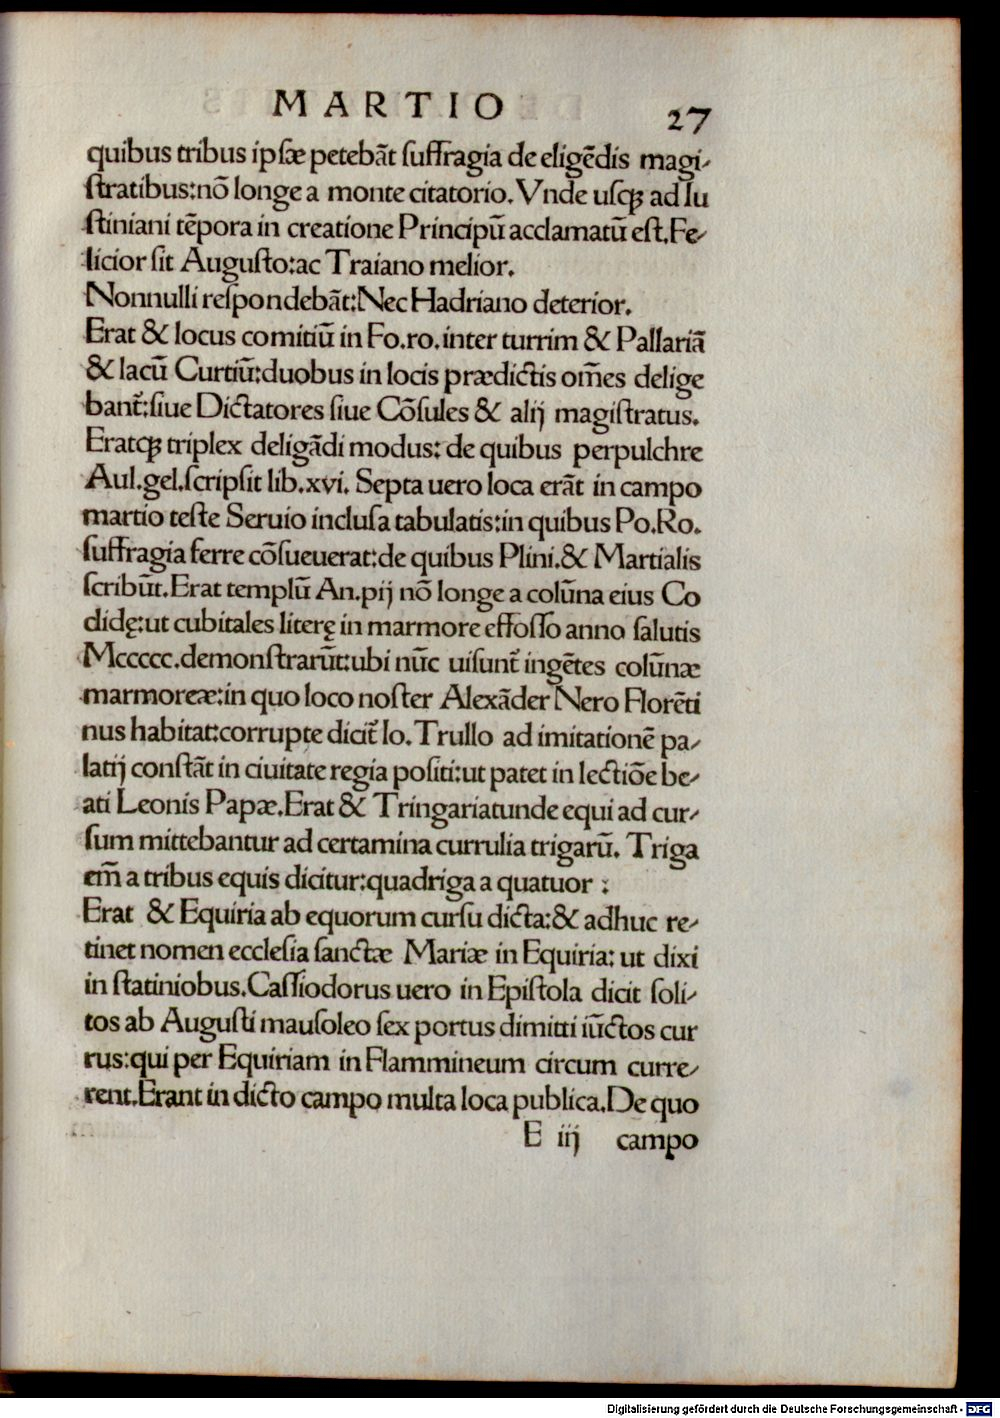 MARTIO
27
quibus tribus ipſæ petebãt ſuffragia de eligẽdis magi-
ſtratibus:nõ longe a monte citatorio. Vnde uſqꝫ ad Iu
ſtiniani tẽpora in creatione Principũ acclamatũ eſt.Fe-
licior ſit Auguſto:ac Traiano melior.
Nonnulli reſpondebãt:Nec Hadriano deterior.
Erat & locus comitiũ in Fo.ro.inter turrim & Pallariã
& lacũ Curtiũ:duobus in locis prædictis om̃es delige
bant̃:ſiue Dictatores ſiue Cõſules & alij magiſtratus.
Eratqꝫ triplex deligãdi modus: de quibus perpulchre
Aul.gel.ſcripſit lib.xvi. Septa uero loca erãt in campo
martio teſte Seruio incluſa tabulatis:in quibus Po.Ro.
ſuffragia ferre cõſueuerat:de quibus Plini.& Martialis
ſcribũt.Erat templũ An.pij nõ longe a colũna eius Co
didę:ut cubitales literę in marmore effoſſo anno ſalutis
Mccccc.demonſtrarũt:ubi nũc uiſunt̃ ingẽtes colũnæ
marmoreæ:in quo loco noſter Alexãder Nero Florẽti
nus habitat:corrupte dicit̃ lo. Trullo ad imitationẽ pa-
latij conſtãt in ciuitate regia poſiti:ut patet in lectiõe be-
ati Leonis Papæ.Erat & Tringariatunde equi ad cur-
ſum mittebantur ad certamina currulia trigarũ. Triga
em̃ a tribus equis dicitur:quadriga a quatuor :
Erat & Equiria ab equorum curſu dicta:& adhuc re-
tinet nomen eccleſia ſanctæ Mariæ in Equiria: ut dixi
in ſtatiniobus.Caſſiodorus uero in Epiſtola dicit ſoli-
tos ab Auguſti mauſoleo ſex portus dimitti iũctos cur
rus:qui per Equiriam in Flammineum circum curre-
rent.Erant in dicto campo multa loca publica.De quo
E iij campo
Digitalisierung gefördert durch die Deutsche Forschungsgemeinschaft - DFG